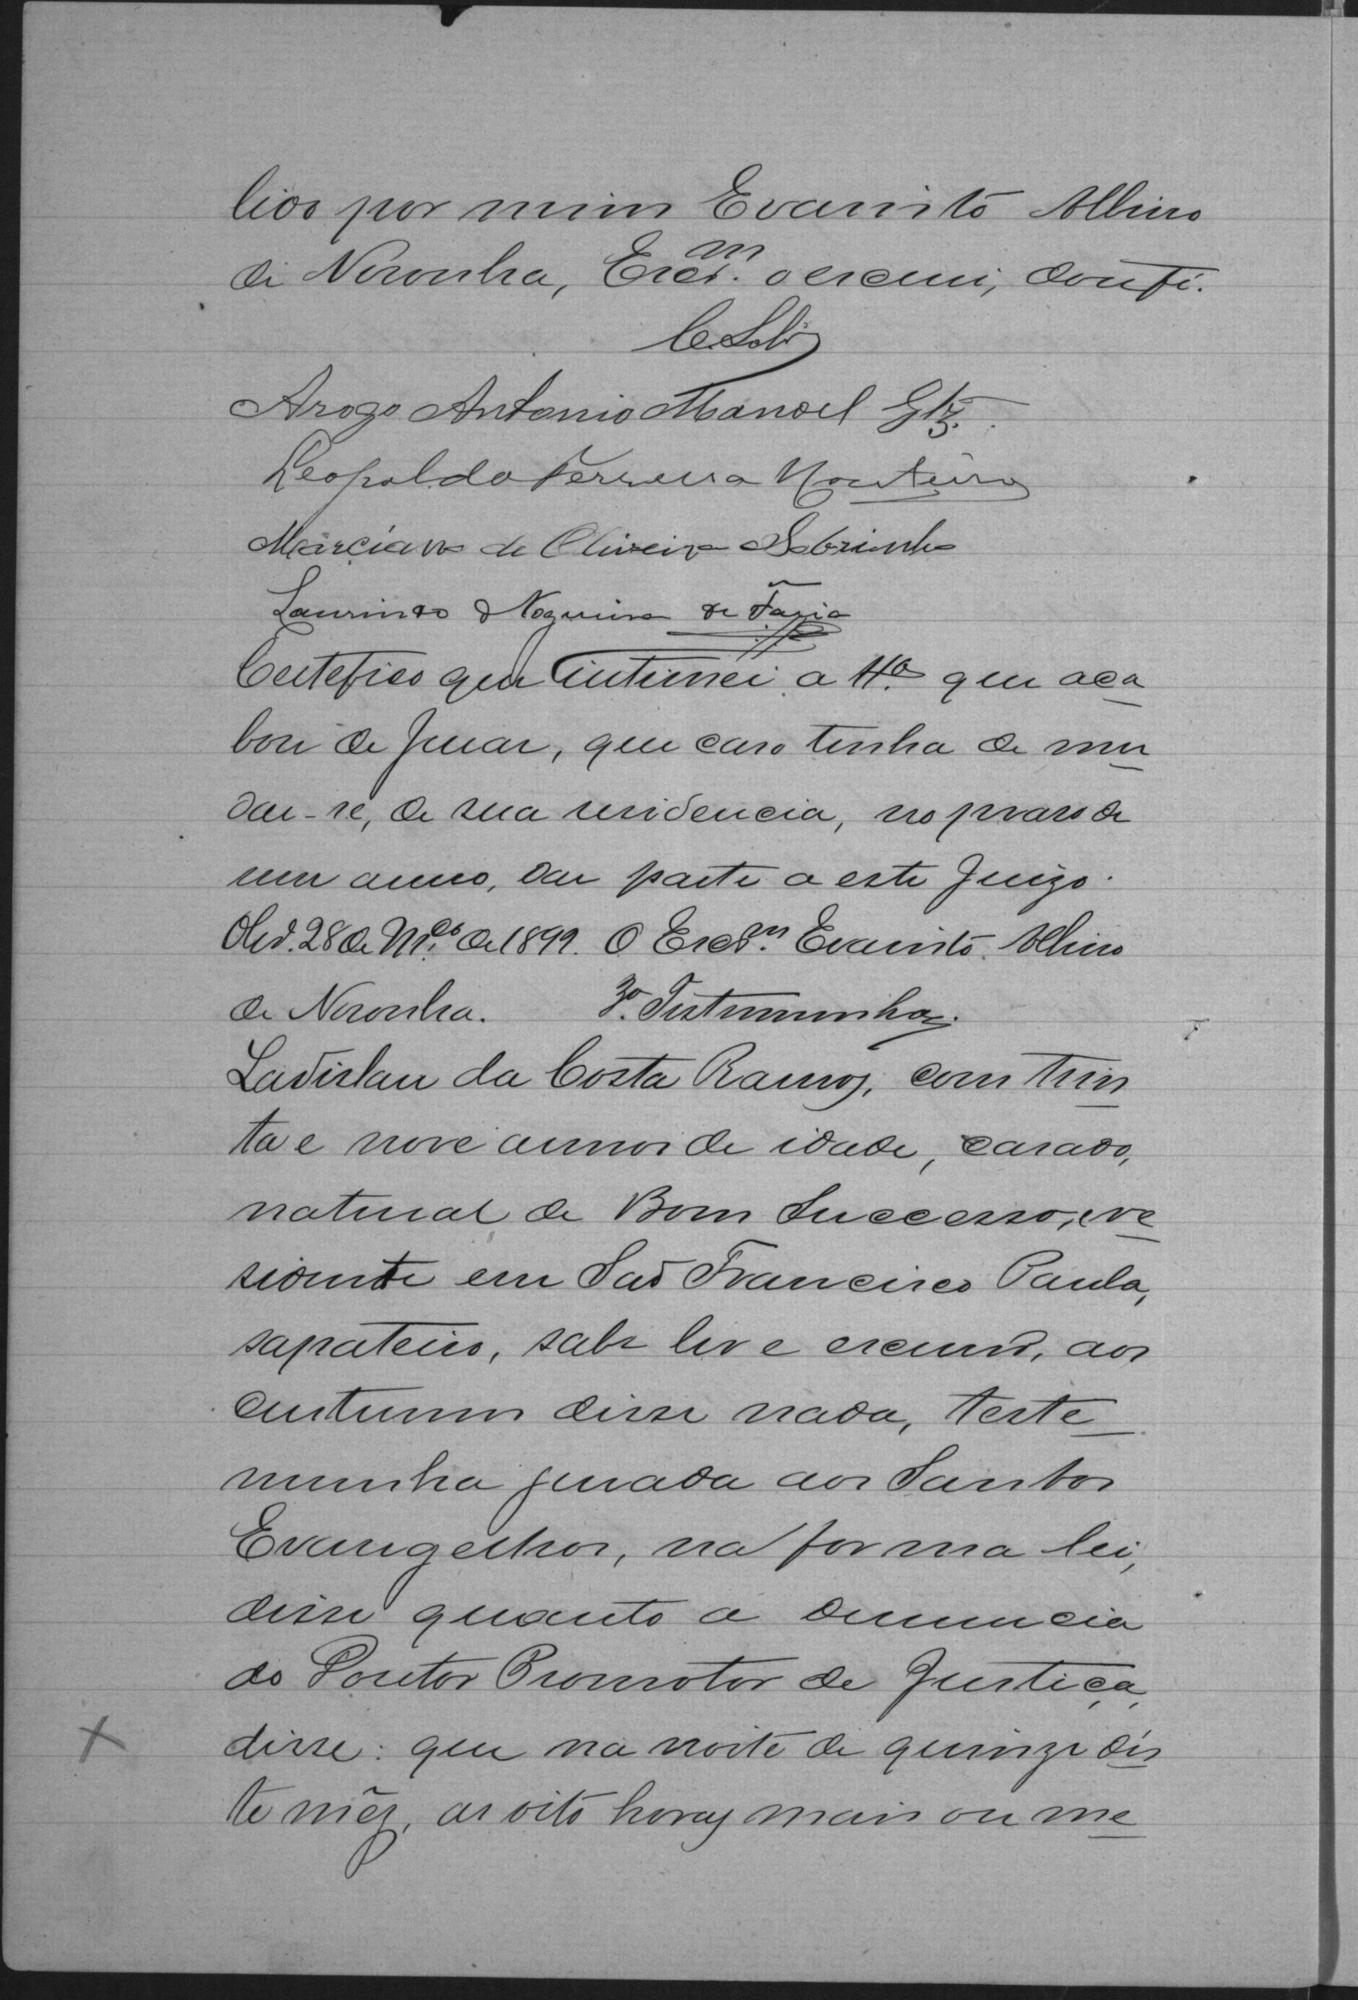 lido por mim Evaristo Albino
de Noronha, Escr.m o escrevi, dou fé.
Arogo Antonio Manoel Glz.
Leopoldo Ferreira Monteiro
Marciano de Oliveira Sobrinho
Laurindo Nogueira de Faria
Certefico que intimei a tt.a que aca
bou de jurar, que caso tenha de mu
dar-se, de sua residencia, no praso de
um anno, dar parte a este Juizo.
28 de de 1899. O Escr.m Evaristo Albino
de Noronha. 3.a Testemunha.
Ladislau da Costa Ramos, com trin
ta e nove annos de idade, casado,
natural de Bom Successo, e re
sidente em São Francisco Paula,
sapateiro, sabe ler e escrever, aos
custumes disse nada, teste
munha jurada aos Santos
Evangelhos, na forma lei,
disse quanto a denuncia
do Doutor Promotor de Justiça,
disse: que na noite de quinze dês
te mêz, as oito horas mais ou me